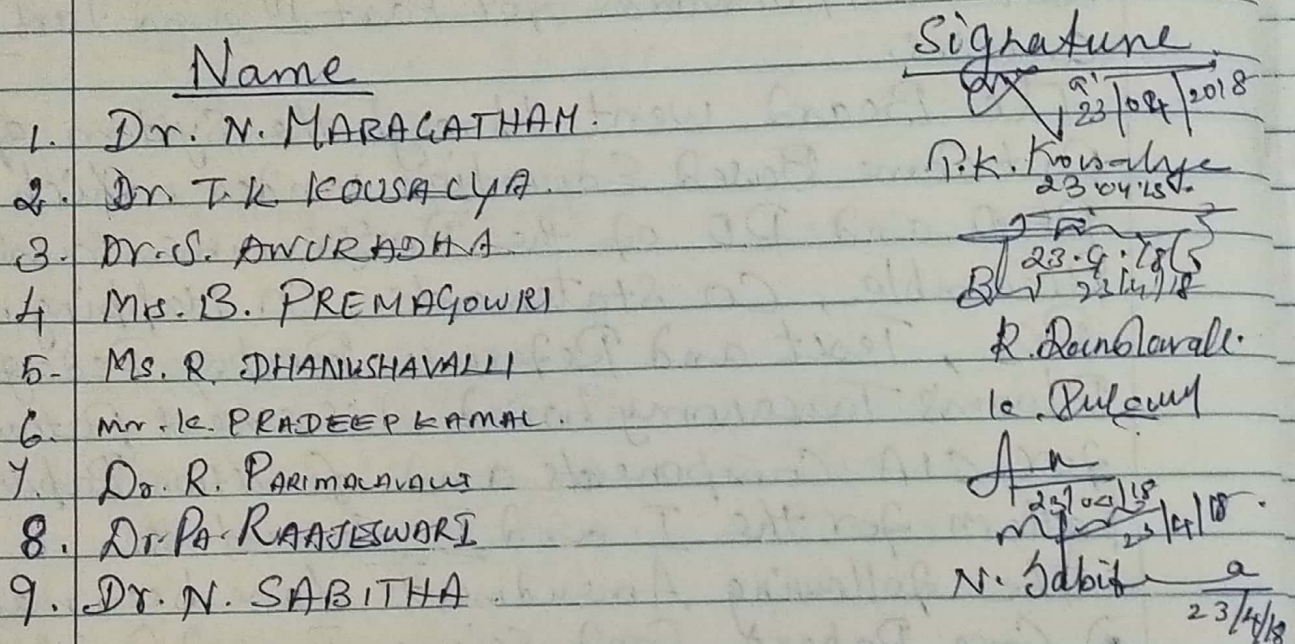 Name Signature
1. Dr. N. MARAGATHAM. 23/04/2018
2. Dr. T.K KOUSALYA. T.K. Kousalya
23.04.18
3. Dr.S. ANURADHA 23.4.18
4 Mrs. B. PREMAGOWRI 23/4/18
5- Ms. R. DHANUSHAVALLI R.
6. Mr. K. PRADEEP KAMAL. K.
7. Dr. R. PARIMALAVALLI 23/04/18
8. Dr. PA. RAAJESWARI 23/4/18.
9. Dr. N. SABITHA N. Sabitha
23/4/18